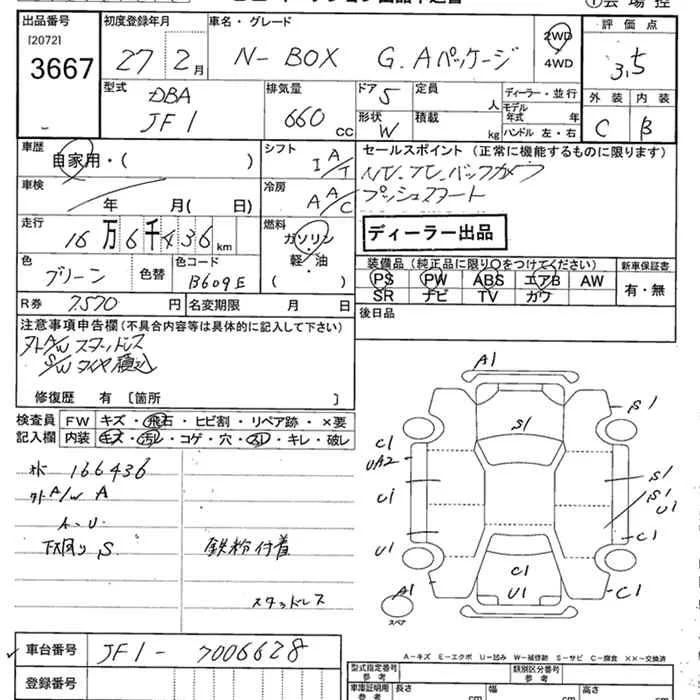 出品番号 初度登録年月 車名・グレード 評価点
[2072]
3667 27年2月 N-BOX G.Aパッケージ 2WD 3.5
4WD
型式 DBA 排気量 ドア 5 定員 人 ディーラー・並行 外装 内装
JF1 660 CC 形状 W 積載 kg モデル年式 年 C B
ハンドル 左・右
車歴 自家用・( ) シフト I A/T セールスポイント (正常に機能するものに限ります)
車検 年 月( 日) 冷房 A A/C バックカメラ
プッシュスタート
走行 16万6千436km 燃料 ガソリン・軽・油 ( ) ディーラー出品
色 グリーン 色替 色コード B609E
装備品 (純正品に限り○をつけてください) 新車保証書
PS PW ABS エアB AW 有・無
SR ナビ TV カワ
R券 7570円 名変期限 月 日 後日品
注意事項申告欄(不具合内容等は具体的に記入して下さい)
外A/W スタッドレス
S/W タイヤ積込
修復歴 有 [箇所 ]
検査員 FW キズ・飛石・ヒビ割・リペア跡・×要
記入欄 内装 キズ・汚レ・コゲ・穴・スレ・キレ・破レ
166436
外A/W A
下回り S 鉄粉付着
スタッドレス
A1
S1 S1
C1
UA2 S1
U1 S1
U1
U1 C1
C1
A1 U1 C1
スペア
車台番号 JF1-7006628
登録番号
A-キズ E-エクボ U-凹み W-補修跡 S-サビ C-腐食 ××-交換済
型式指定番号 参考 類別区分番号 参考
車庫証明用 参考 長さ cm 幅 cm 高さ cm